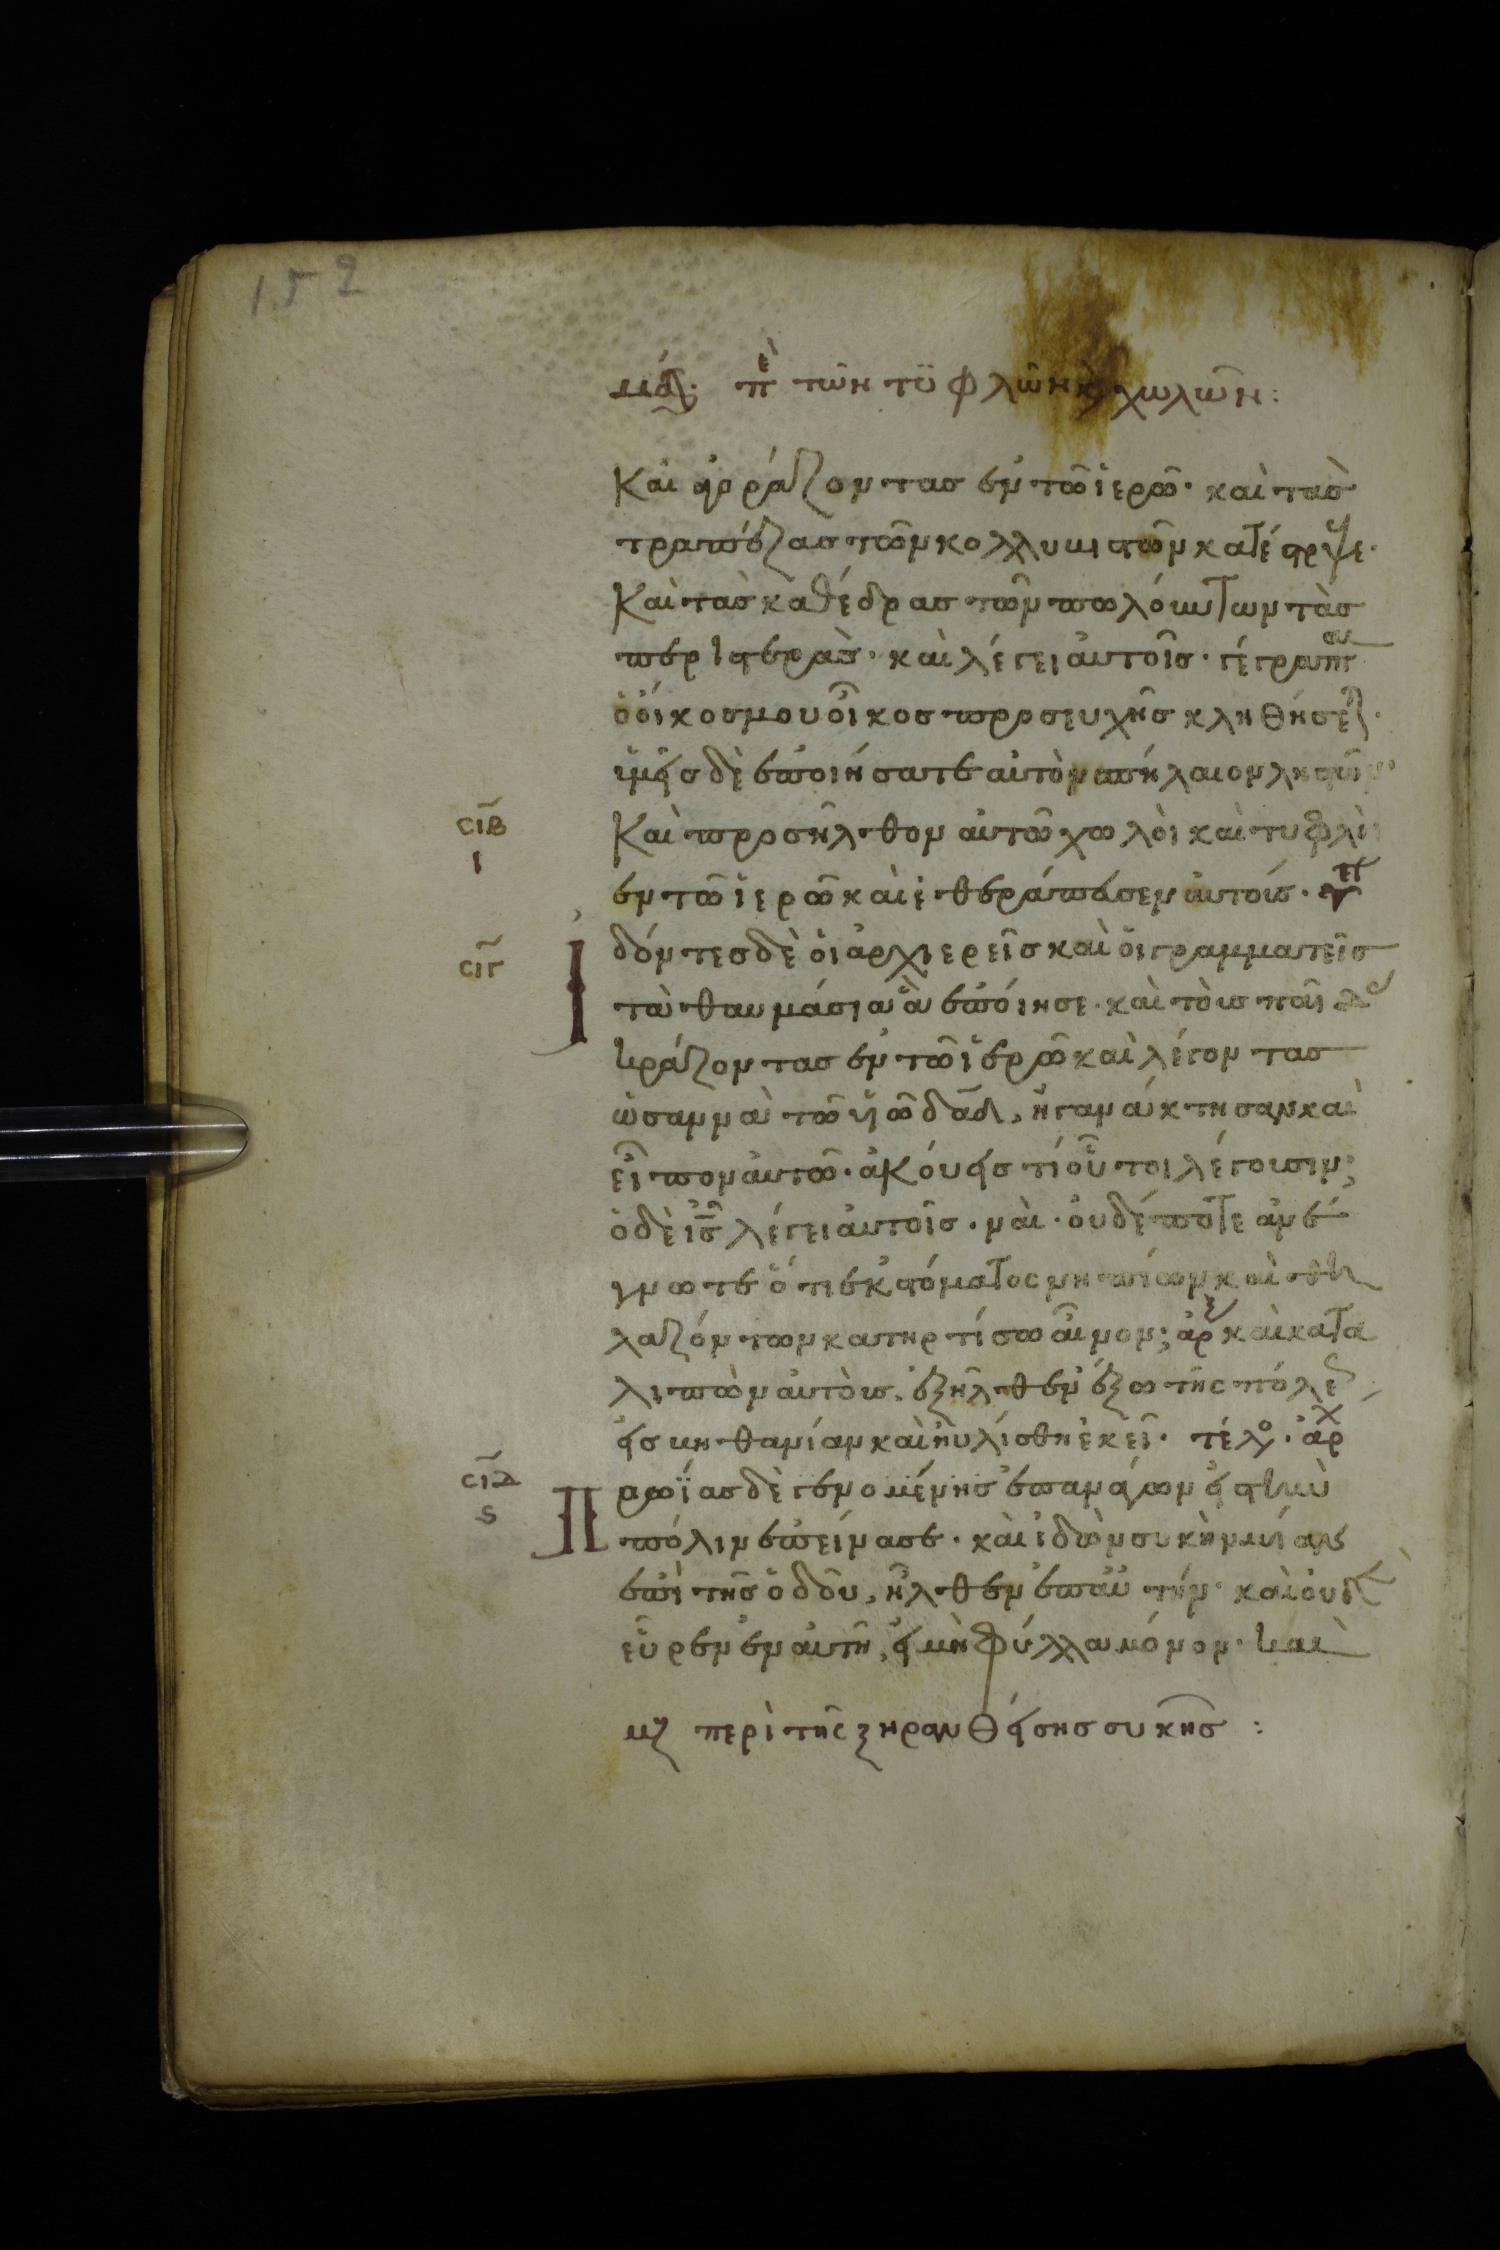 152
μϛ· πε τῶν τυφλῶν κ χωλῶν:
Καὶ ἀγοράζοντας ἐν τῶ ἱερῶ· καὶ τὰς
τραπέζας τῶν κολλυβιστῶν κατέστρεψε·
Καὶ τὰς καθέδρας τῶν πωλούντων τὰς
περιστεράς· καὶ λέγει αὐτοῖς· γέγραπται
ὁ οἶκος μου οἶκος προσευχῆς κληθήσεται·
ὑμεῖς δὲ ἐποιήσατε αὐτὸν σπήλαιον ληστῶν·
σιβ
ι
Καὶ προσῆλθον αὐτῶ χωλοὶ καὶ τυφλοὶ
ἐν τῶ ἱερῶ καὶ ἐθεράπευσεν αὐτούς·
σιγ
Ἰδόντες δὲ οἱ ἀρχιερεῖς καὶ οἱ γραμματεῖς
τὰ θαυμάσια ἃ ἐποίησε· καὶ τοὺς παῖδας
κράζοντας ἐν τῶ ἱερῶ καὶ λέγοντας
ὡσαννὰ τῶ υἱῶ δαδ, ἠγανάκτησαν καὶ
εἶπον αὐτῶ· ἀκούεις τί οὗτοι λέγουσιν;
ὁ δὲ ις λέγει αὐτοῖς· ναὶ· οὐδέποτε ἀνέ
γνωτε ὅτι ἐκ στόματος νηπίων καὶ θη
λαζόντων κατηρτίσω αἶνον; καὶ κατα
λιπὼν αὐτοὺς, ἐξῆλθεν ἔξω τῆς πόλεως
εἰς βηθανίαν καὶ ηὐλίσθη ἐκεῖ· τέλο· ἀρχ
σιδ
ϛ
Πρωΐας δὲ γενομένης ἐπανάγων εἰς τὴν
πόλιν ἐπείνασε· καὶ ἰδὼν συκῆν μίαν
ἐπὶ τῆς ὁδοῦ, ἦλθεν ἐπ αὐτήν· καὶ οὐδὲν
εὗρεν ἐν αὐτῆ, εἰ μὴ φύλλα μόνον· καὶ
μζ περὶ τῆς ξηρανθείσης συκῆς: